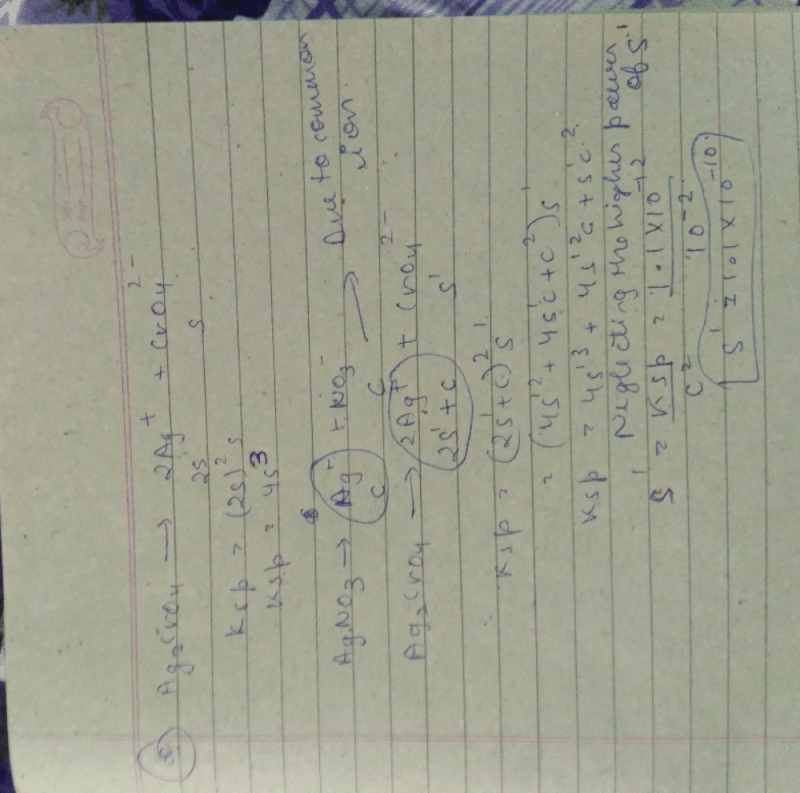 Ag₂CrO₄ → 2Ag⁺ + CrO₄²⁻
2s s
Ksp = (2s)² s
Ksp = 4s³
AgNO₃ → Ag⁺ + NO₃⁻ → Due to common ion.
C C
Ag₂CrO₄ → 2Ag⁺ + CrO₄²⁻
2s'+c s'
Ksp = (2s'+c)² s'
= (4s'² + 4s'c + c²)s'
Ksp = 4s'³ + 4s'²c + s'c².
Neglecting the higher power of s'
s' = Ksp/c² = 1.1×10⁻¹²/10⁻².
s' = 1.1 × 10⁻¹⁰.